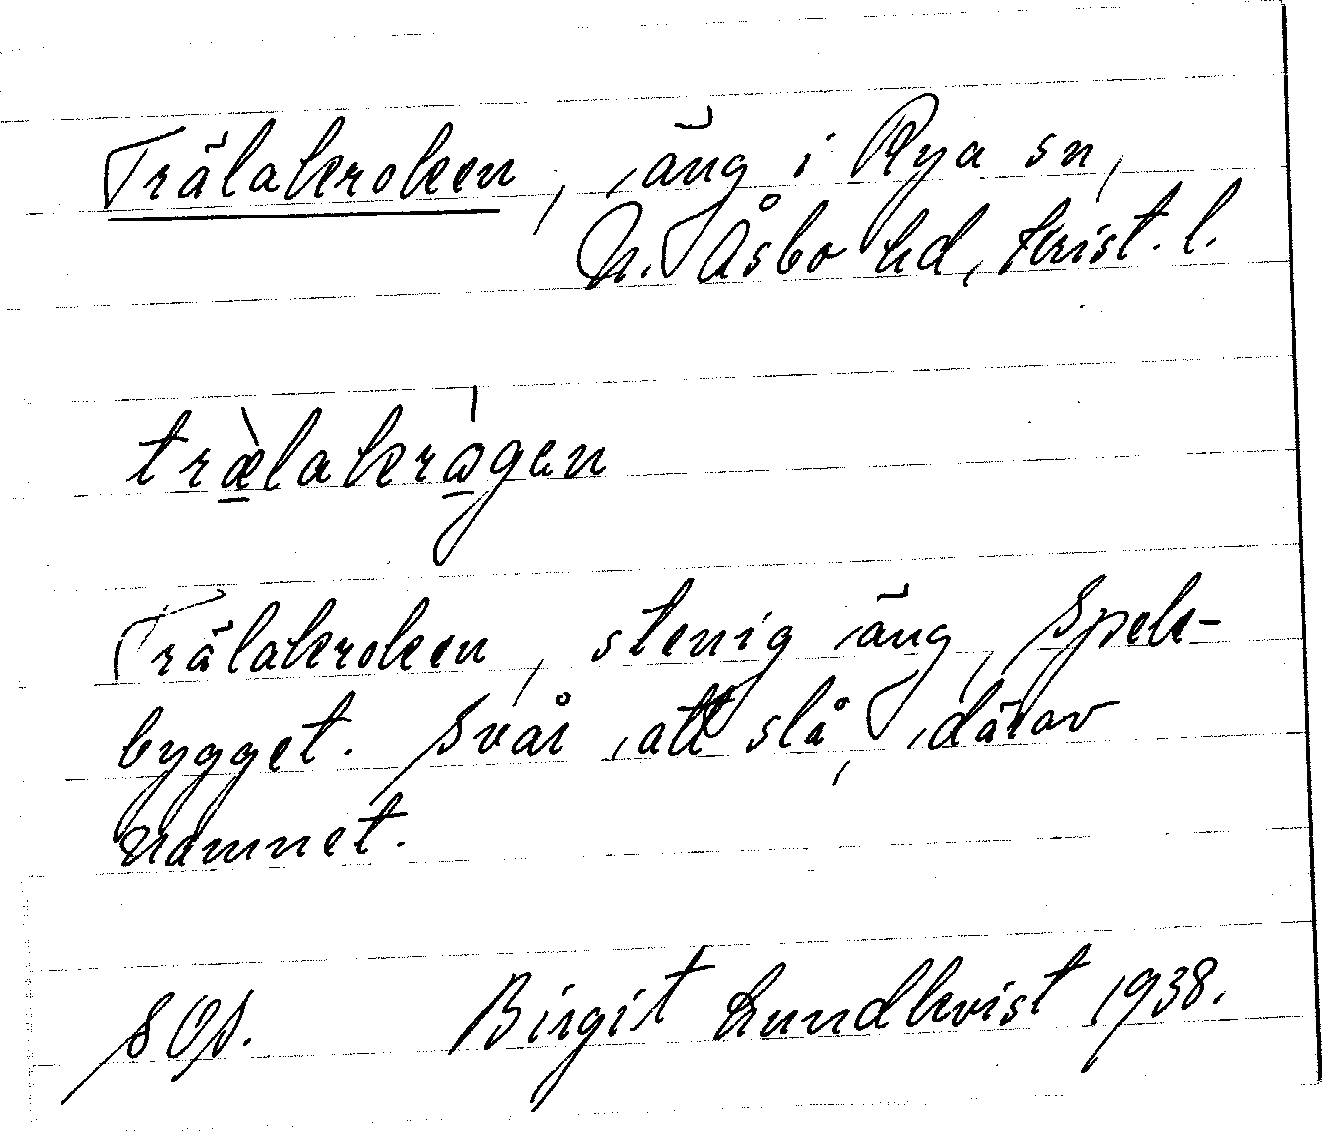 Trälakroken, äng i Rya sn,
N. Åsbo hd, Krist. l.
træ̀lakrågen
Trälakroken, stenig äng, Spek-
bygget. Svår att slå, därav
namnet.
SOS. Birgit Lundkvist 1938.